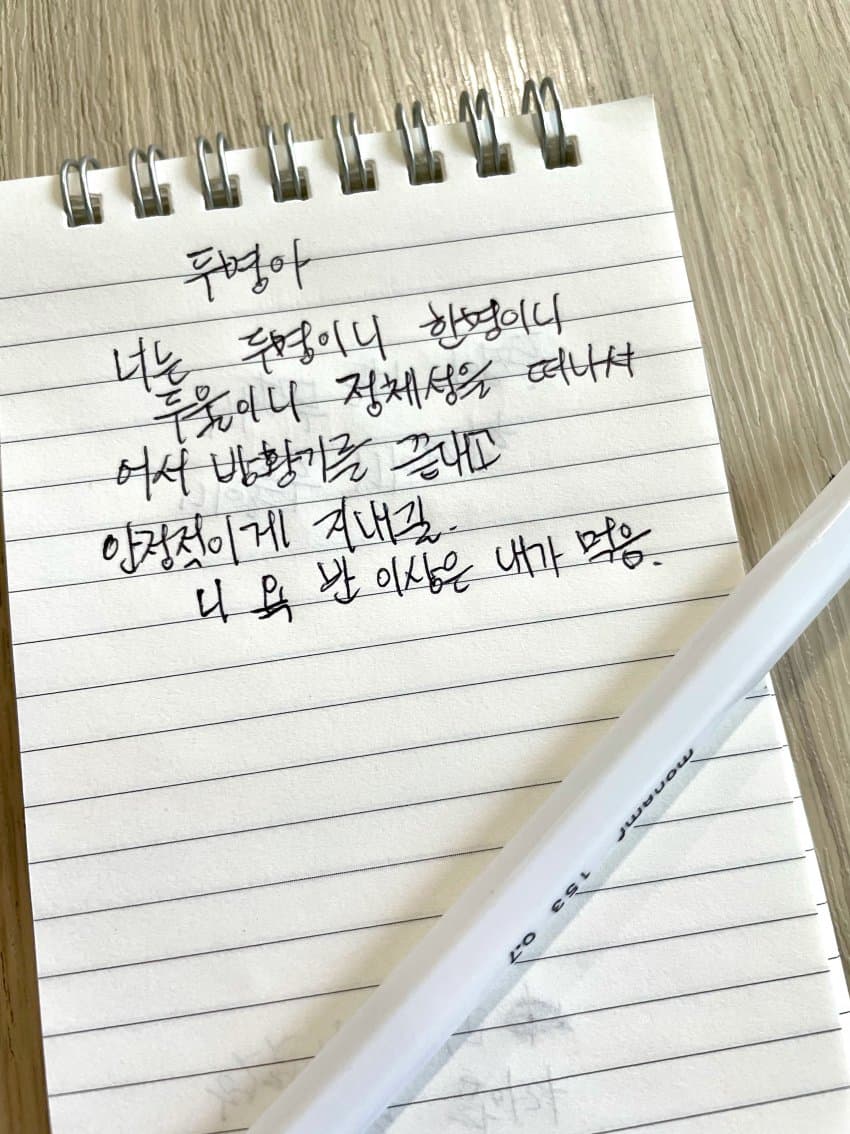 두명아
너는 두명이니 한명이니
두울이니 정체성을 떠나서
어서 방황기를 끝내고
안정적이게 지내길.
니 욕 반 이상은 내가 먹음.
monami 153 0.7